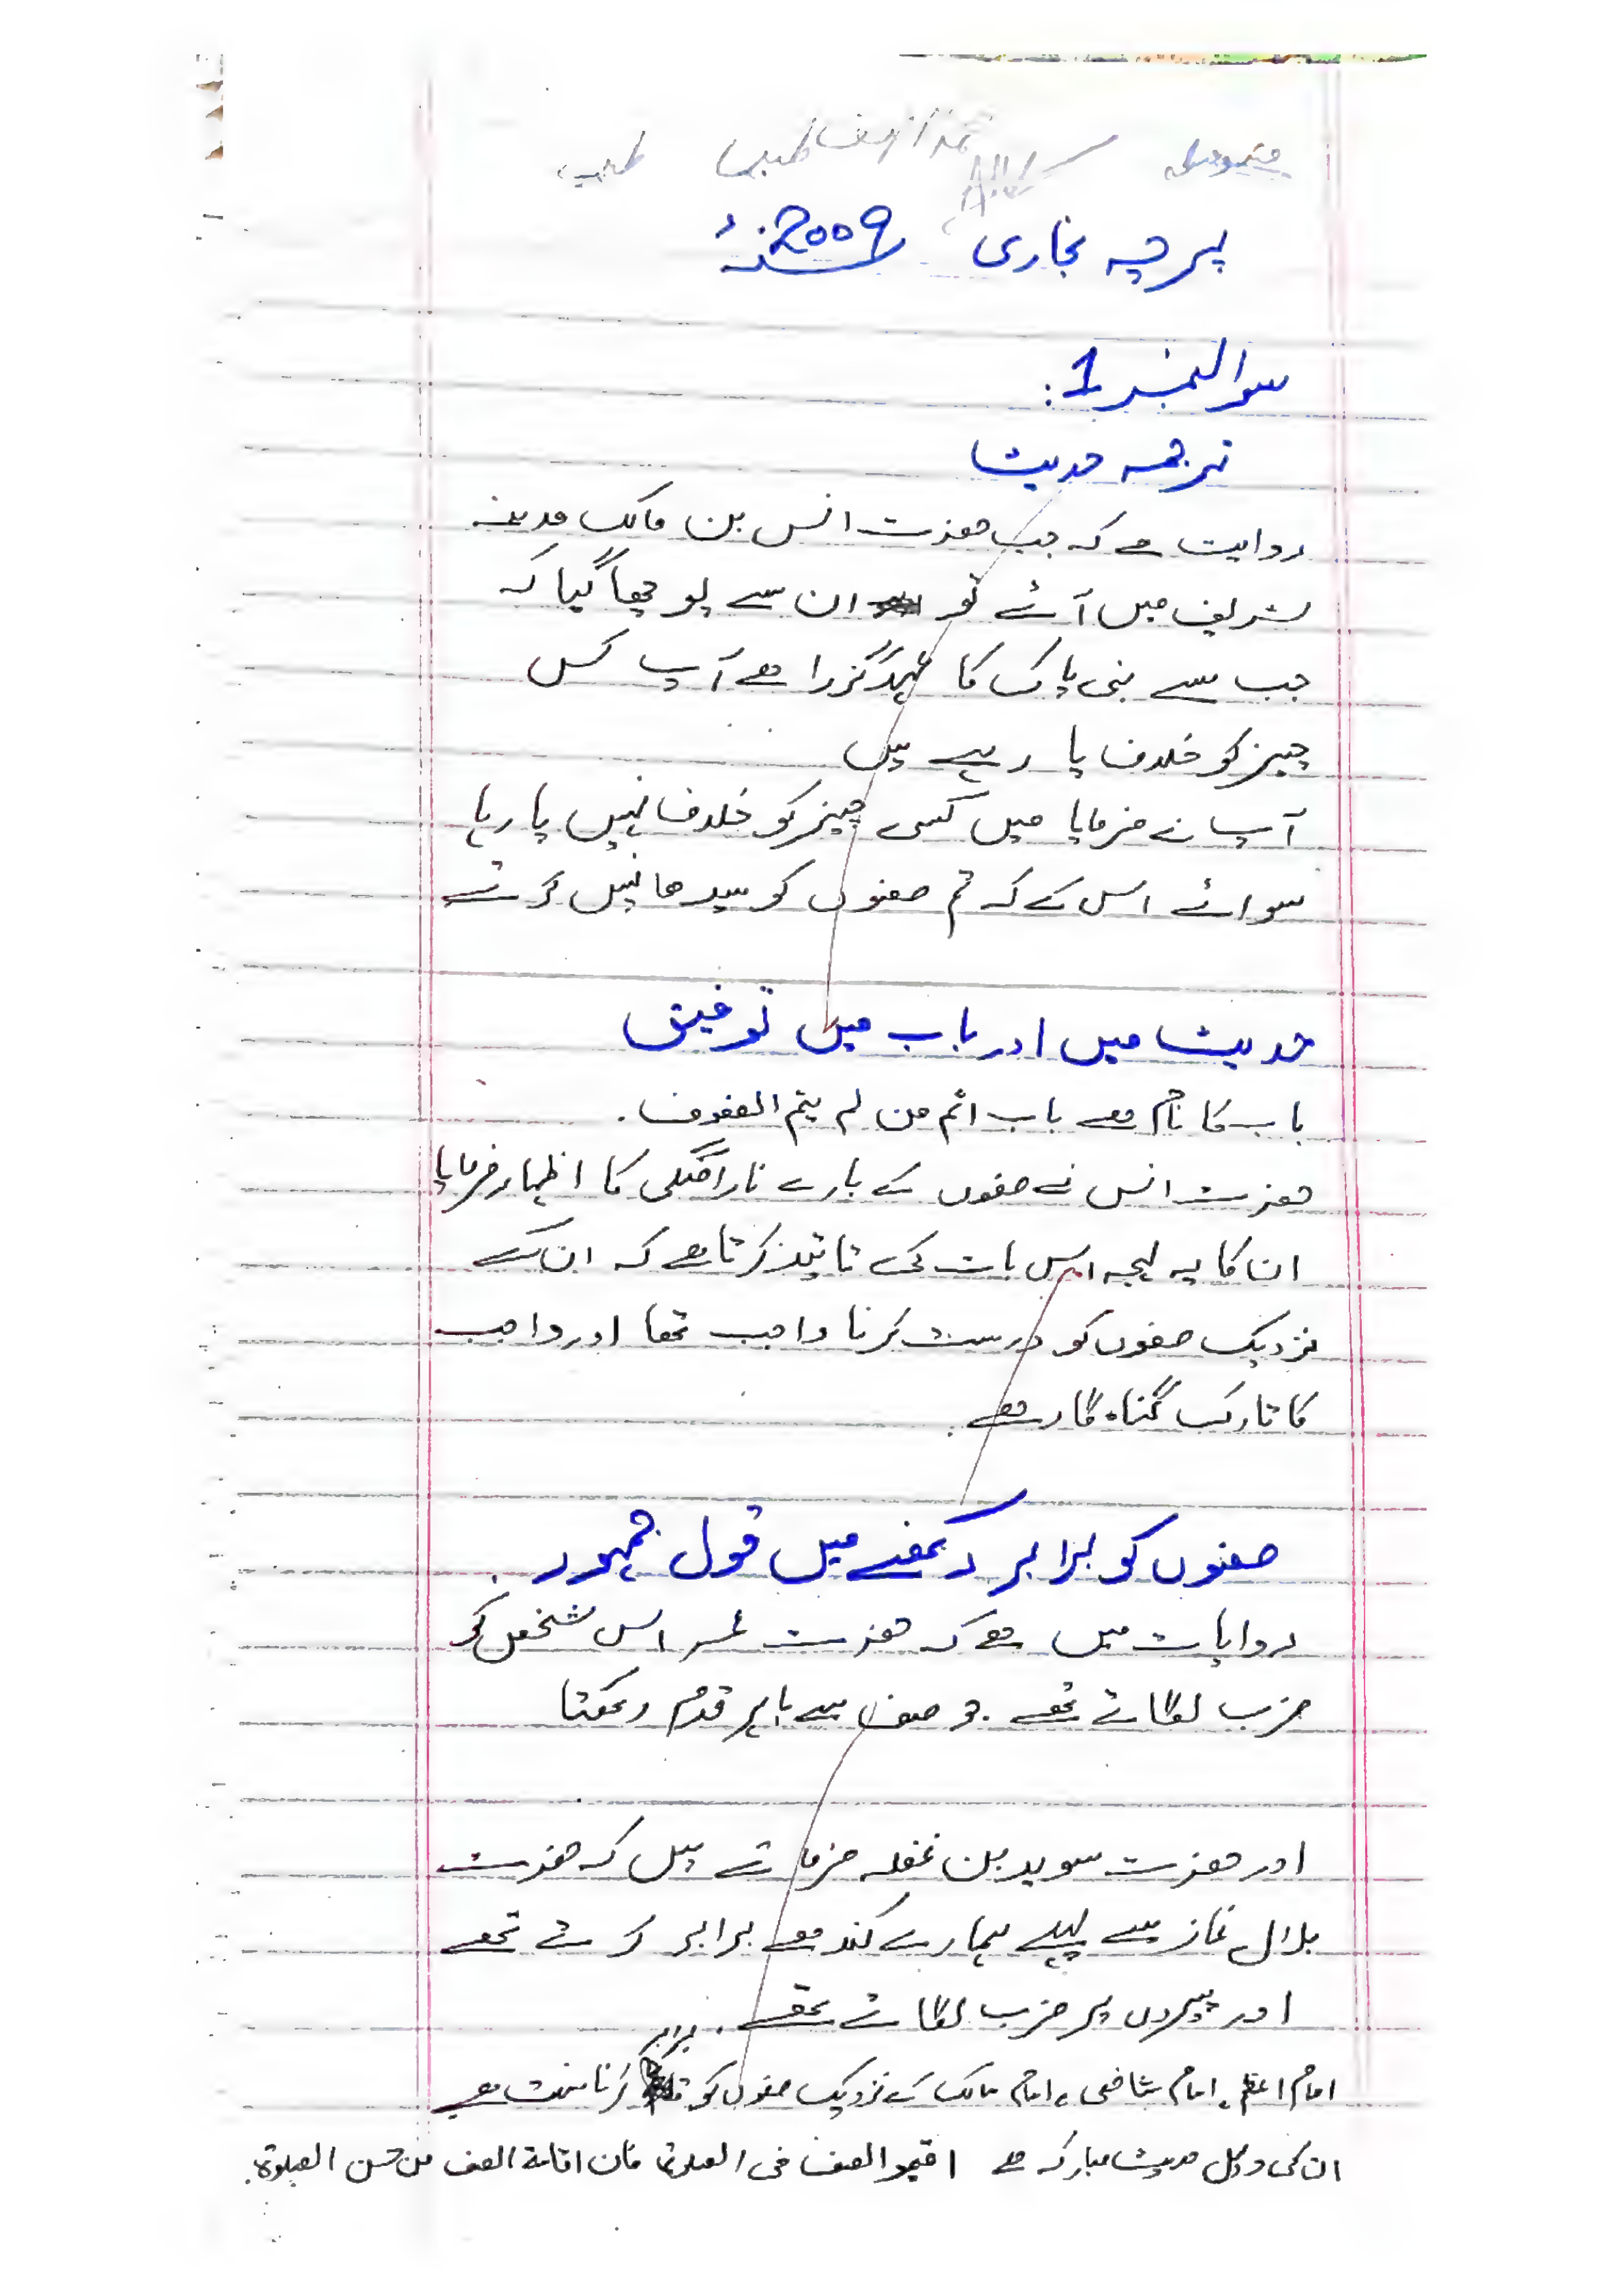 پرچہ بخاری 2009ء
سوالنمبر 1:
ترجمہ حدیث
روایت ہے کہ جب حضرت انس بن مالک مدینہ
شریف میں آئے تو ان سے پوچھا گیا کہ
جب سے نبی پاک کا عہد گزرا ہے آپ کس
چیز کو خلاف پا رہے ہیں
آپ نے فرمایا میں کسی چیز کو خلاف نہیں پا رہا
سوائے اس کے کہ تم صفوں کو سیدھا نہیں کرتے
حدیث میں اور باب میں توفیق
باب کا نام ہے باب اثم من لم یتم الصفوف.
حضرت انس نے صفوں کے بارے ناراضگی کا اظہار فرمایا
ان کا یہ لہجہ اس بات کی تائید کرتا ہے کہ ان کے
نزدیک صفوں کو درست کرنا واجب تھا اور واجب
کا تارک گناہ گار ہے.
صفوں کو برابر رکھنے میں قول جمہور.
روایات میں ہے کہ حضرت عمر اس شخص کو
ضرب لگاتے تھے جو صف سے باہر قدم رکھتا
اور حضرت سوید بن غفلہ فرماتے ہیں کہ حضرت
بلال نماز سے پہلے ہمارے کندھے برابر کرتے تھے
اور پیروں پر ضرب لگاتے تھے.
امام اعظم، امام شافعی، امام مالک کے نزدیک صفوں کو برابر کرنا سنت ہے
ان کی دلیل حدیث مبارکہ ہے اقیمو الصف فی الصلوۃ فان اقامۃ الصف من حسن الصلوۃ.